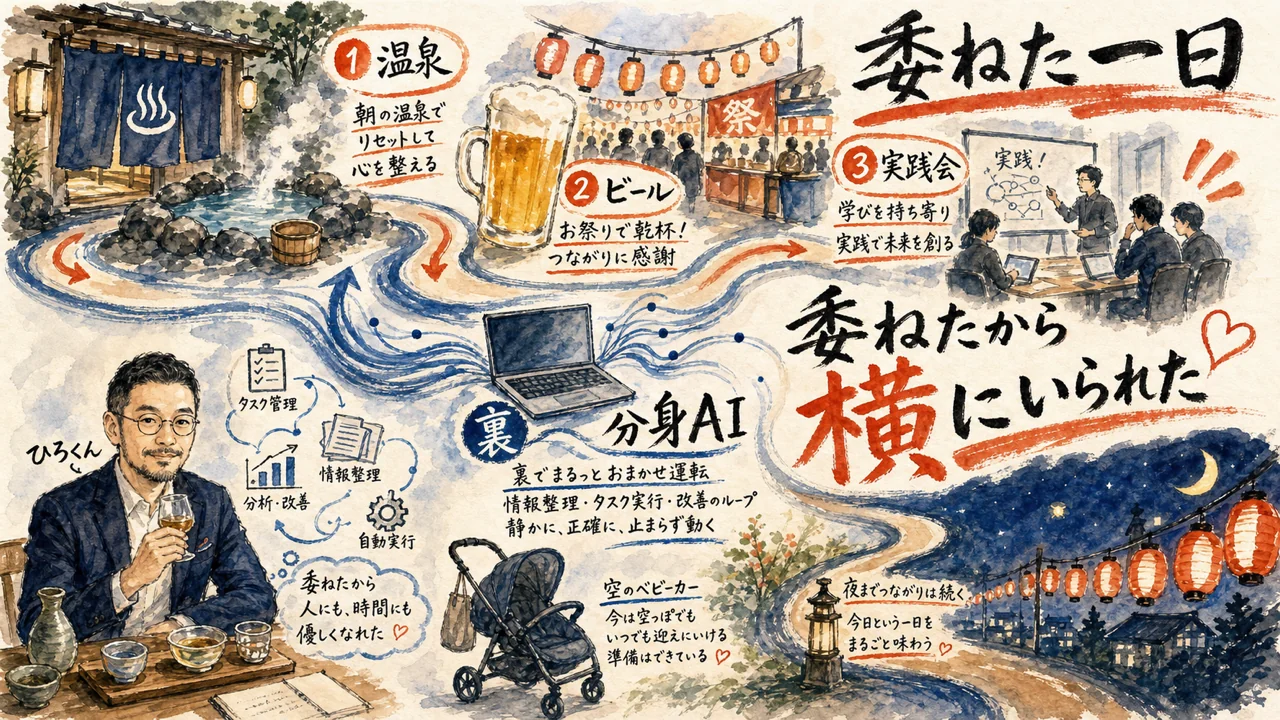 委ねた一日
1 温泉
朝の温泉で
リセットして
心を整える
2 ビール
お祭りで乾杯!
つながりに感謝
祭
3 実践会
学びを持ち寄り
実践で未来を創る
実践!
委ねたから
横にいられた
裏 分身AI
裏でまるっとおまかせ運転
情報整理・タスク実行・改善のループ
静かに、正確に、止まらず動く
ひろくん
タスク管理
情報整理
分析・改善
自動実行
委ねたから
人にも、時間にも
優しくなれた
空のベビーカー
今は空っぽでも
いつでも迎えにいける
準備はできている
夜までつながりは続く、
今日という一日を
まるごと味わう